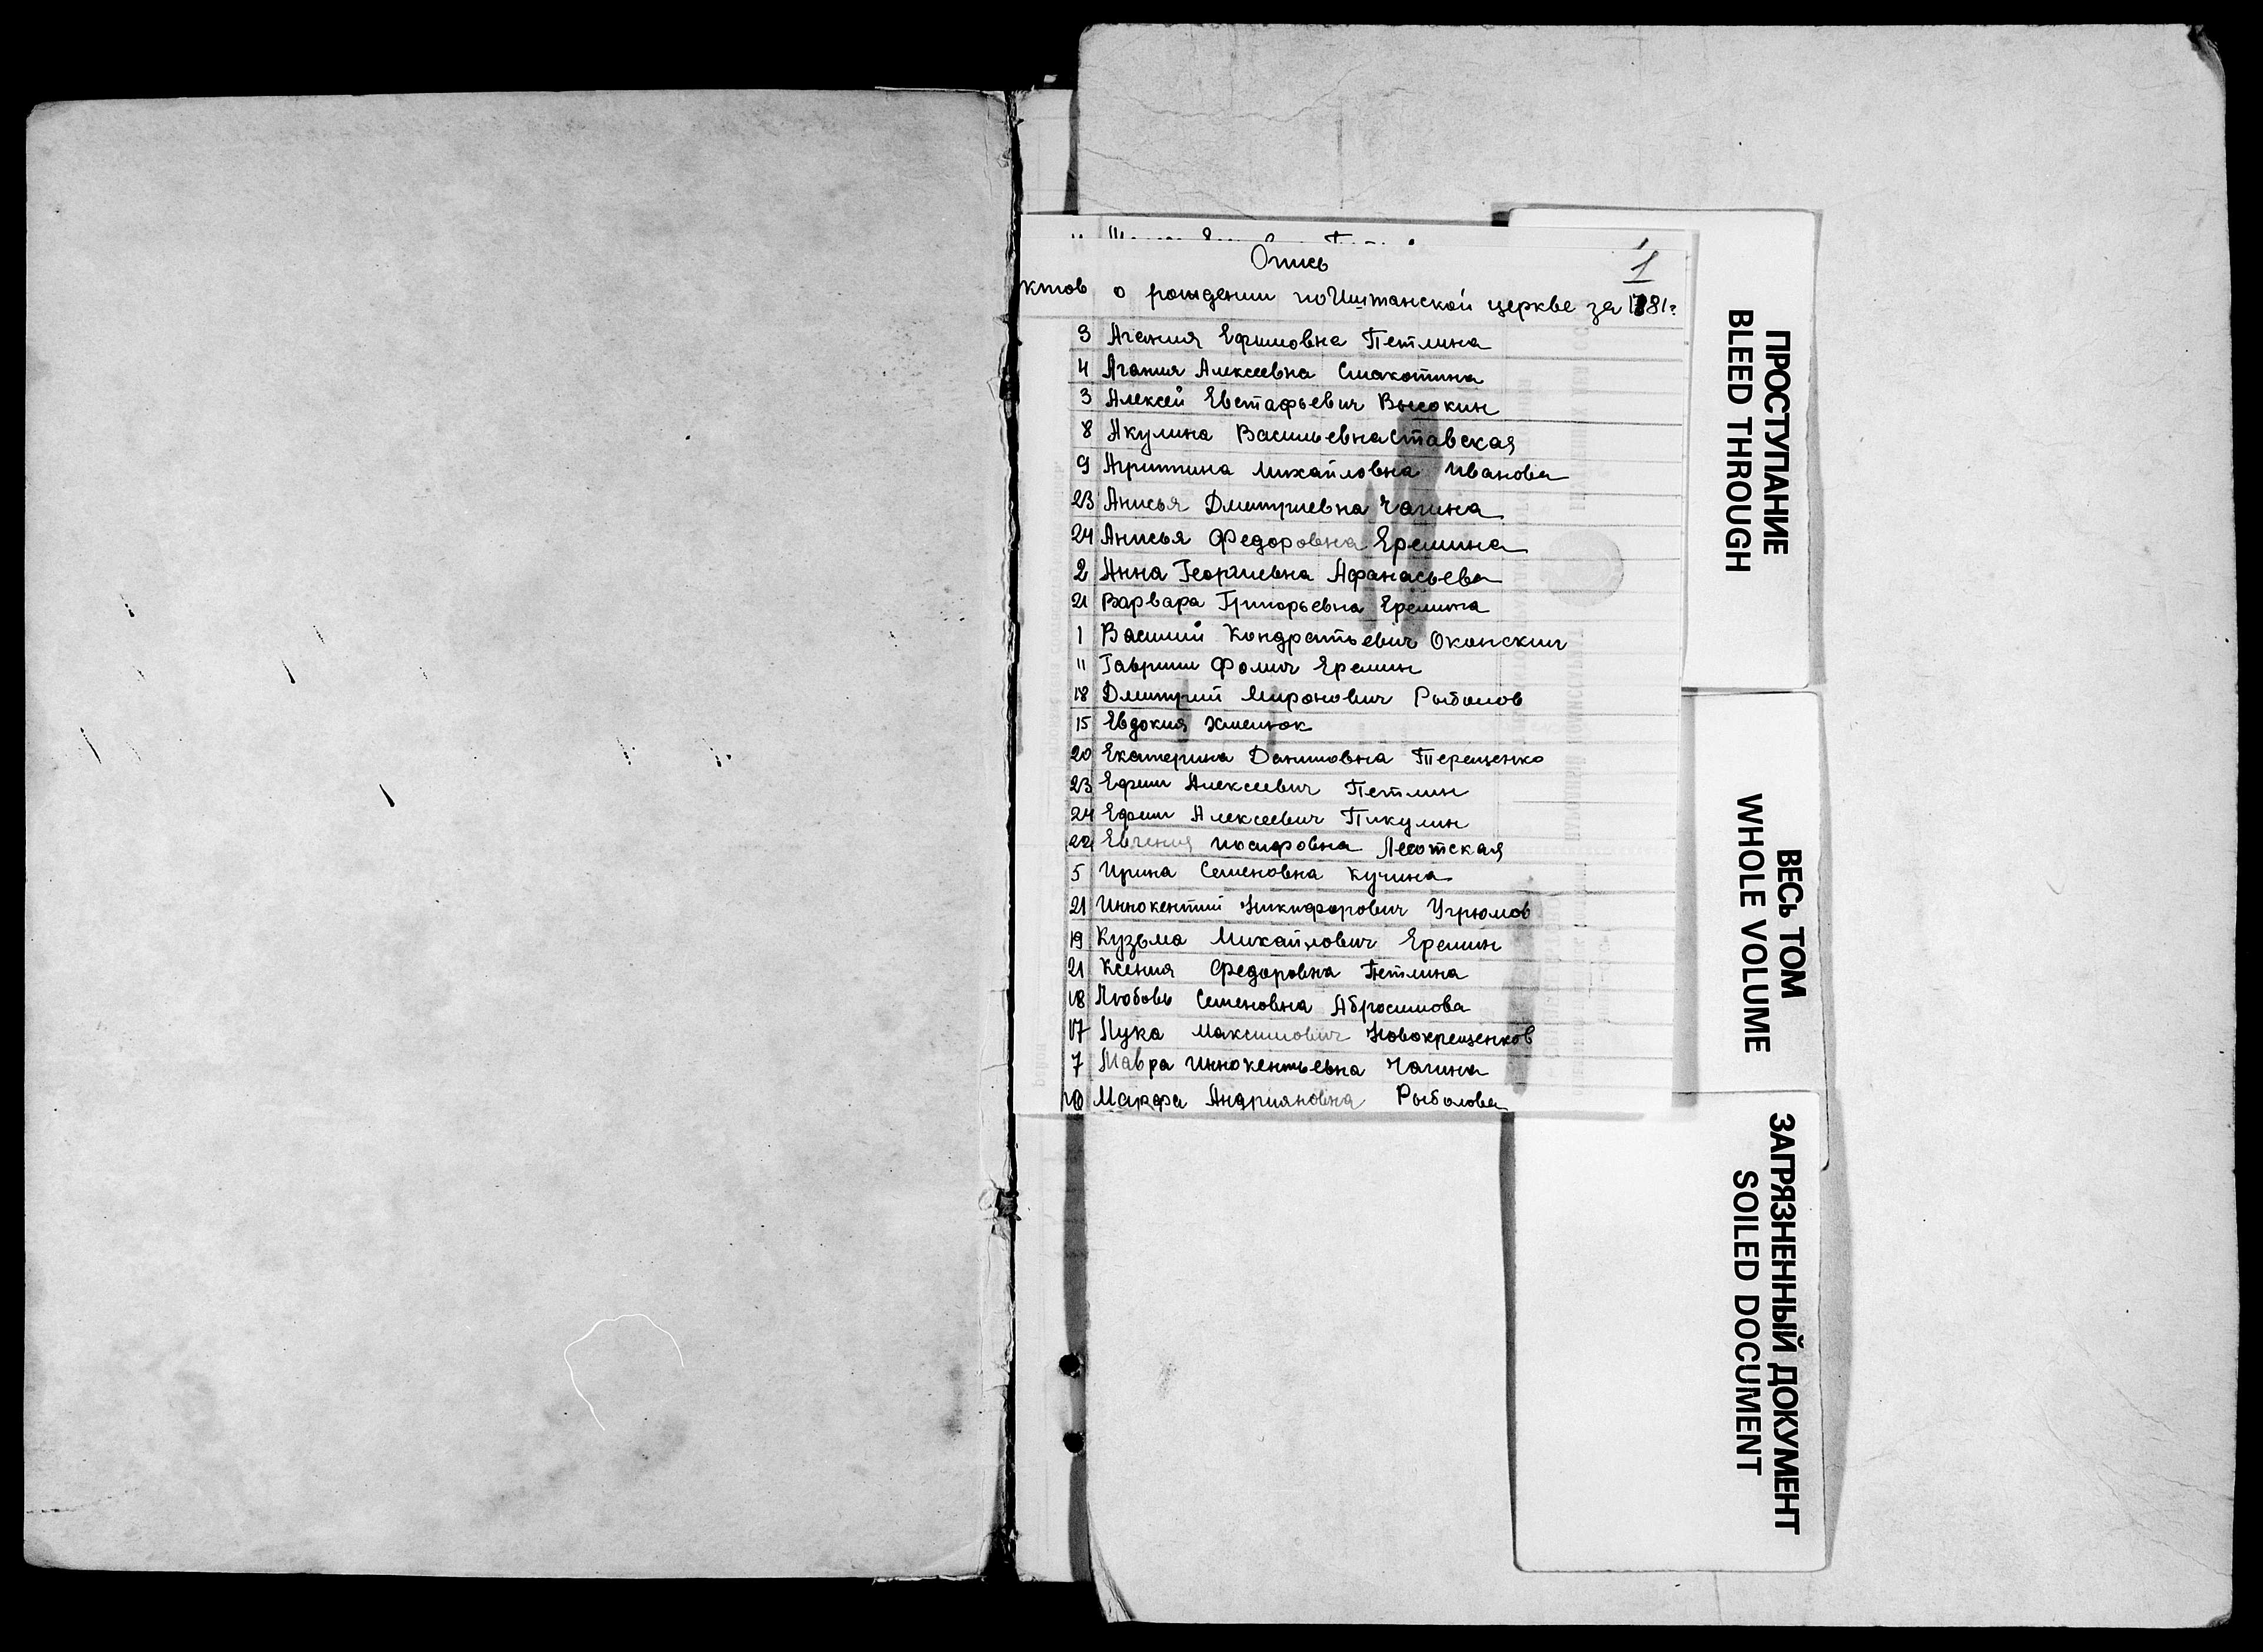 Опись
1
ктов о рождении по Иштанской церкве за 1881г
3 Агания Ефимовна Петлина
4 Агания Алексеевна Смакотина
3 Алексей Евстафьевич Высокин
8 Акулина Васильевна Ставская
9 Агрипина Михайловна Иванова
23 Анисья Дмитриевна Чагина
24 Анисья Федоровна Еремина
2 Анна Георгиевна Афанасьева
21 Варвара Григорьевна Еремина
1 Василий Кондратьевич Оконский
11 Гавриил Фомич Еремин
18 Дмитрий Миронович Рыбалов
15 Евдокия Хмелюк
20 Екатерина Даниловна Терещенко
23 Ефим Алексеевич Петлин
24 Ефим Алексеевич Пикулин
22 Евгения Иосифовна
5 Ирина Семеновна Кучина
21 Иннокентий Никифорович Угрюмов
19 Кузьма Михайлович Еремин
21 Ксения Федоровна Петлина
18 Любовь Семеновна Абросимова
17 Лука Максимович Новокрещенков
7 Мавра Иннокентьевна Чагина
10 Марфа Андрияновна Рыбалова
ПРОСТУПАНИЕ
BLEED THROUGH
ВЕСЬ ТОМ
WHOLE VOLUME
ЗАГРЯЗНЕННЫЙ ДОКУМЕНТ
SOILED DOCUMENT